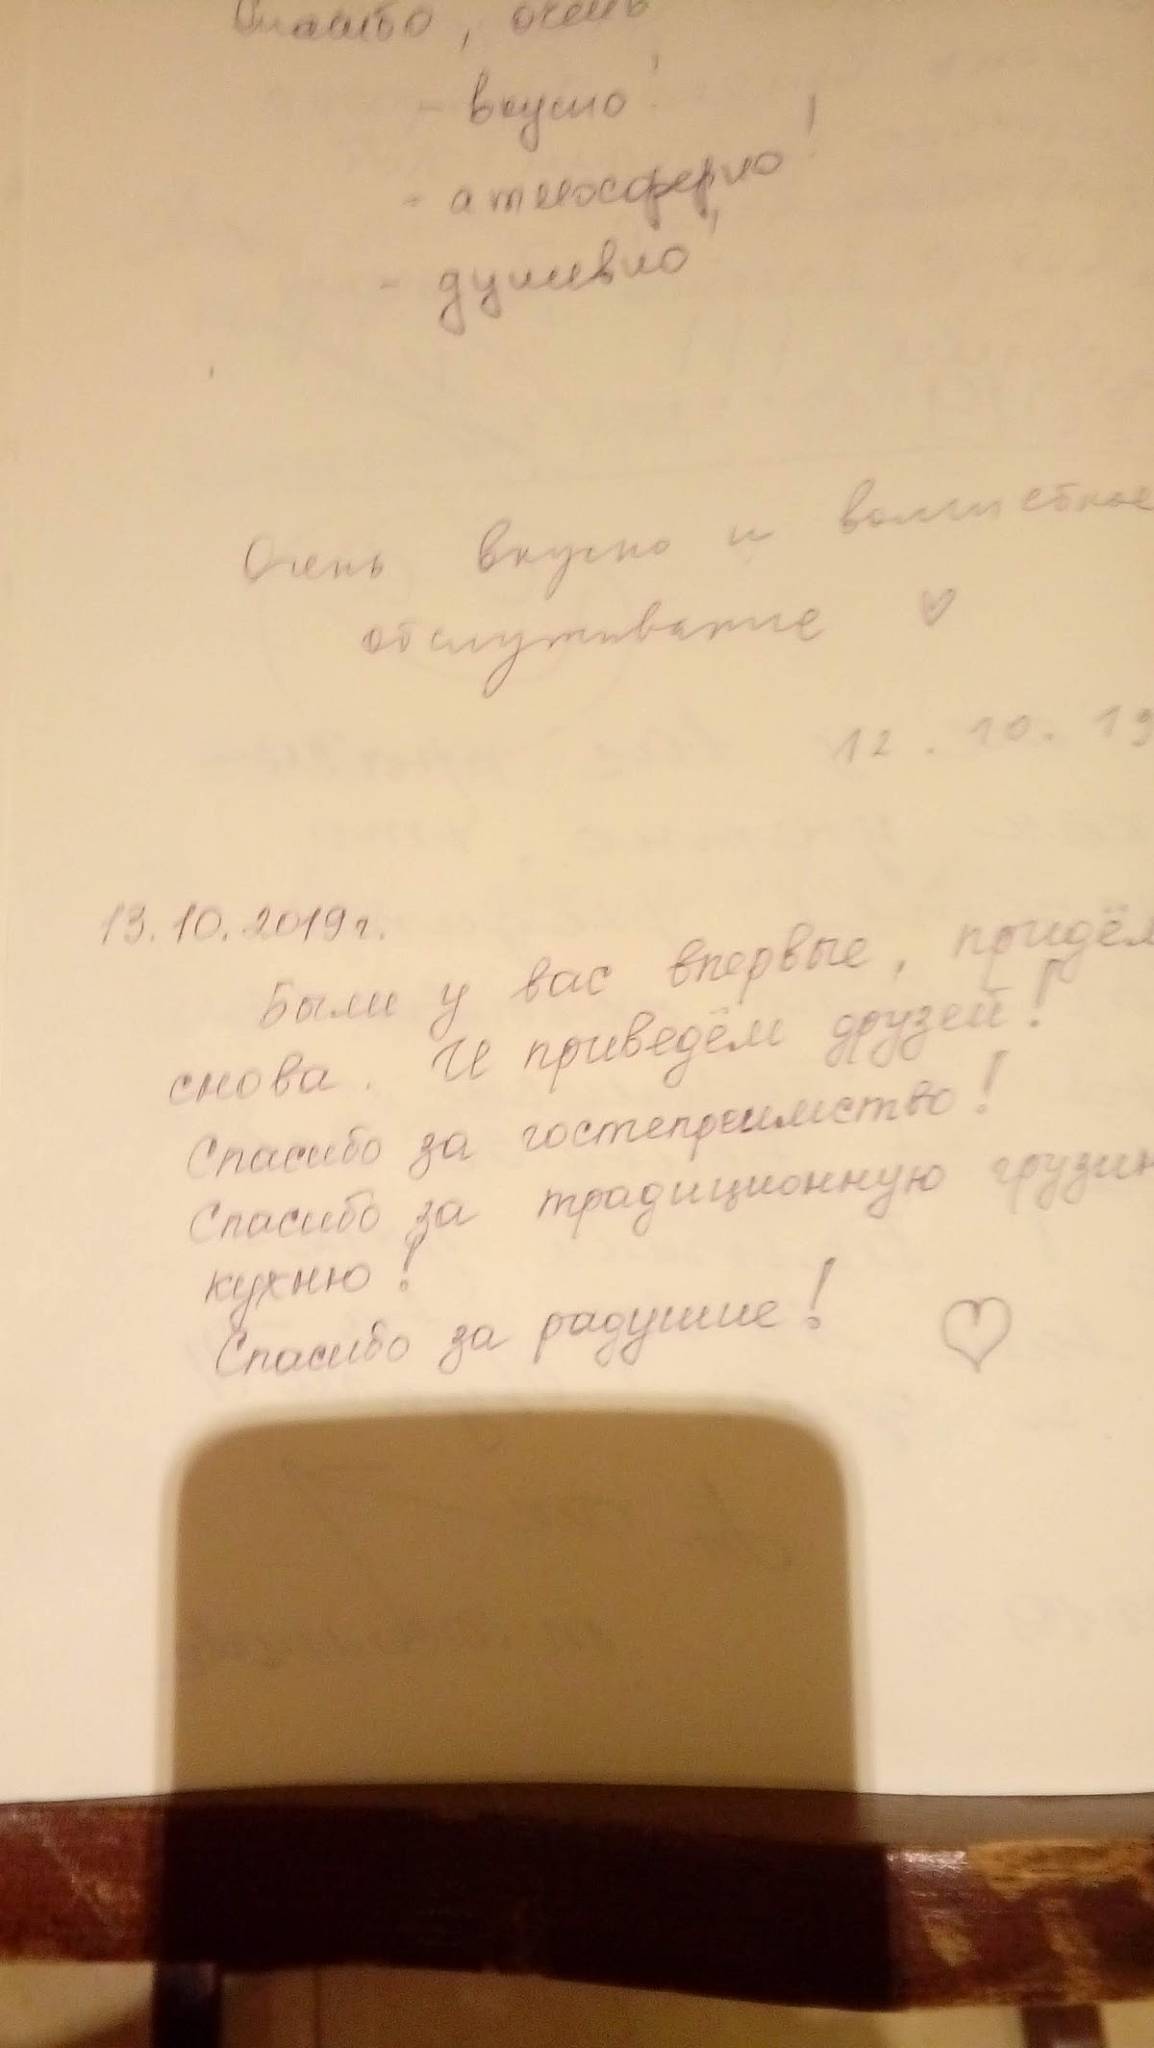 Спасибо, очень
- вкусно!
- атмосферно!
- душевно!
Очень вкусно и волшебное
обслуживание
12.10.19
13.10.2019г.
Были у вас впервые, придём
снова. И приведём друзей!
Спасибо за гостеприимство!
Спасибо за традиционную грузин
кухню!
Спасибо за радушие!